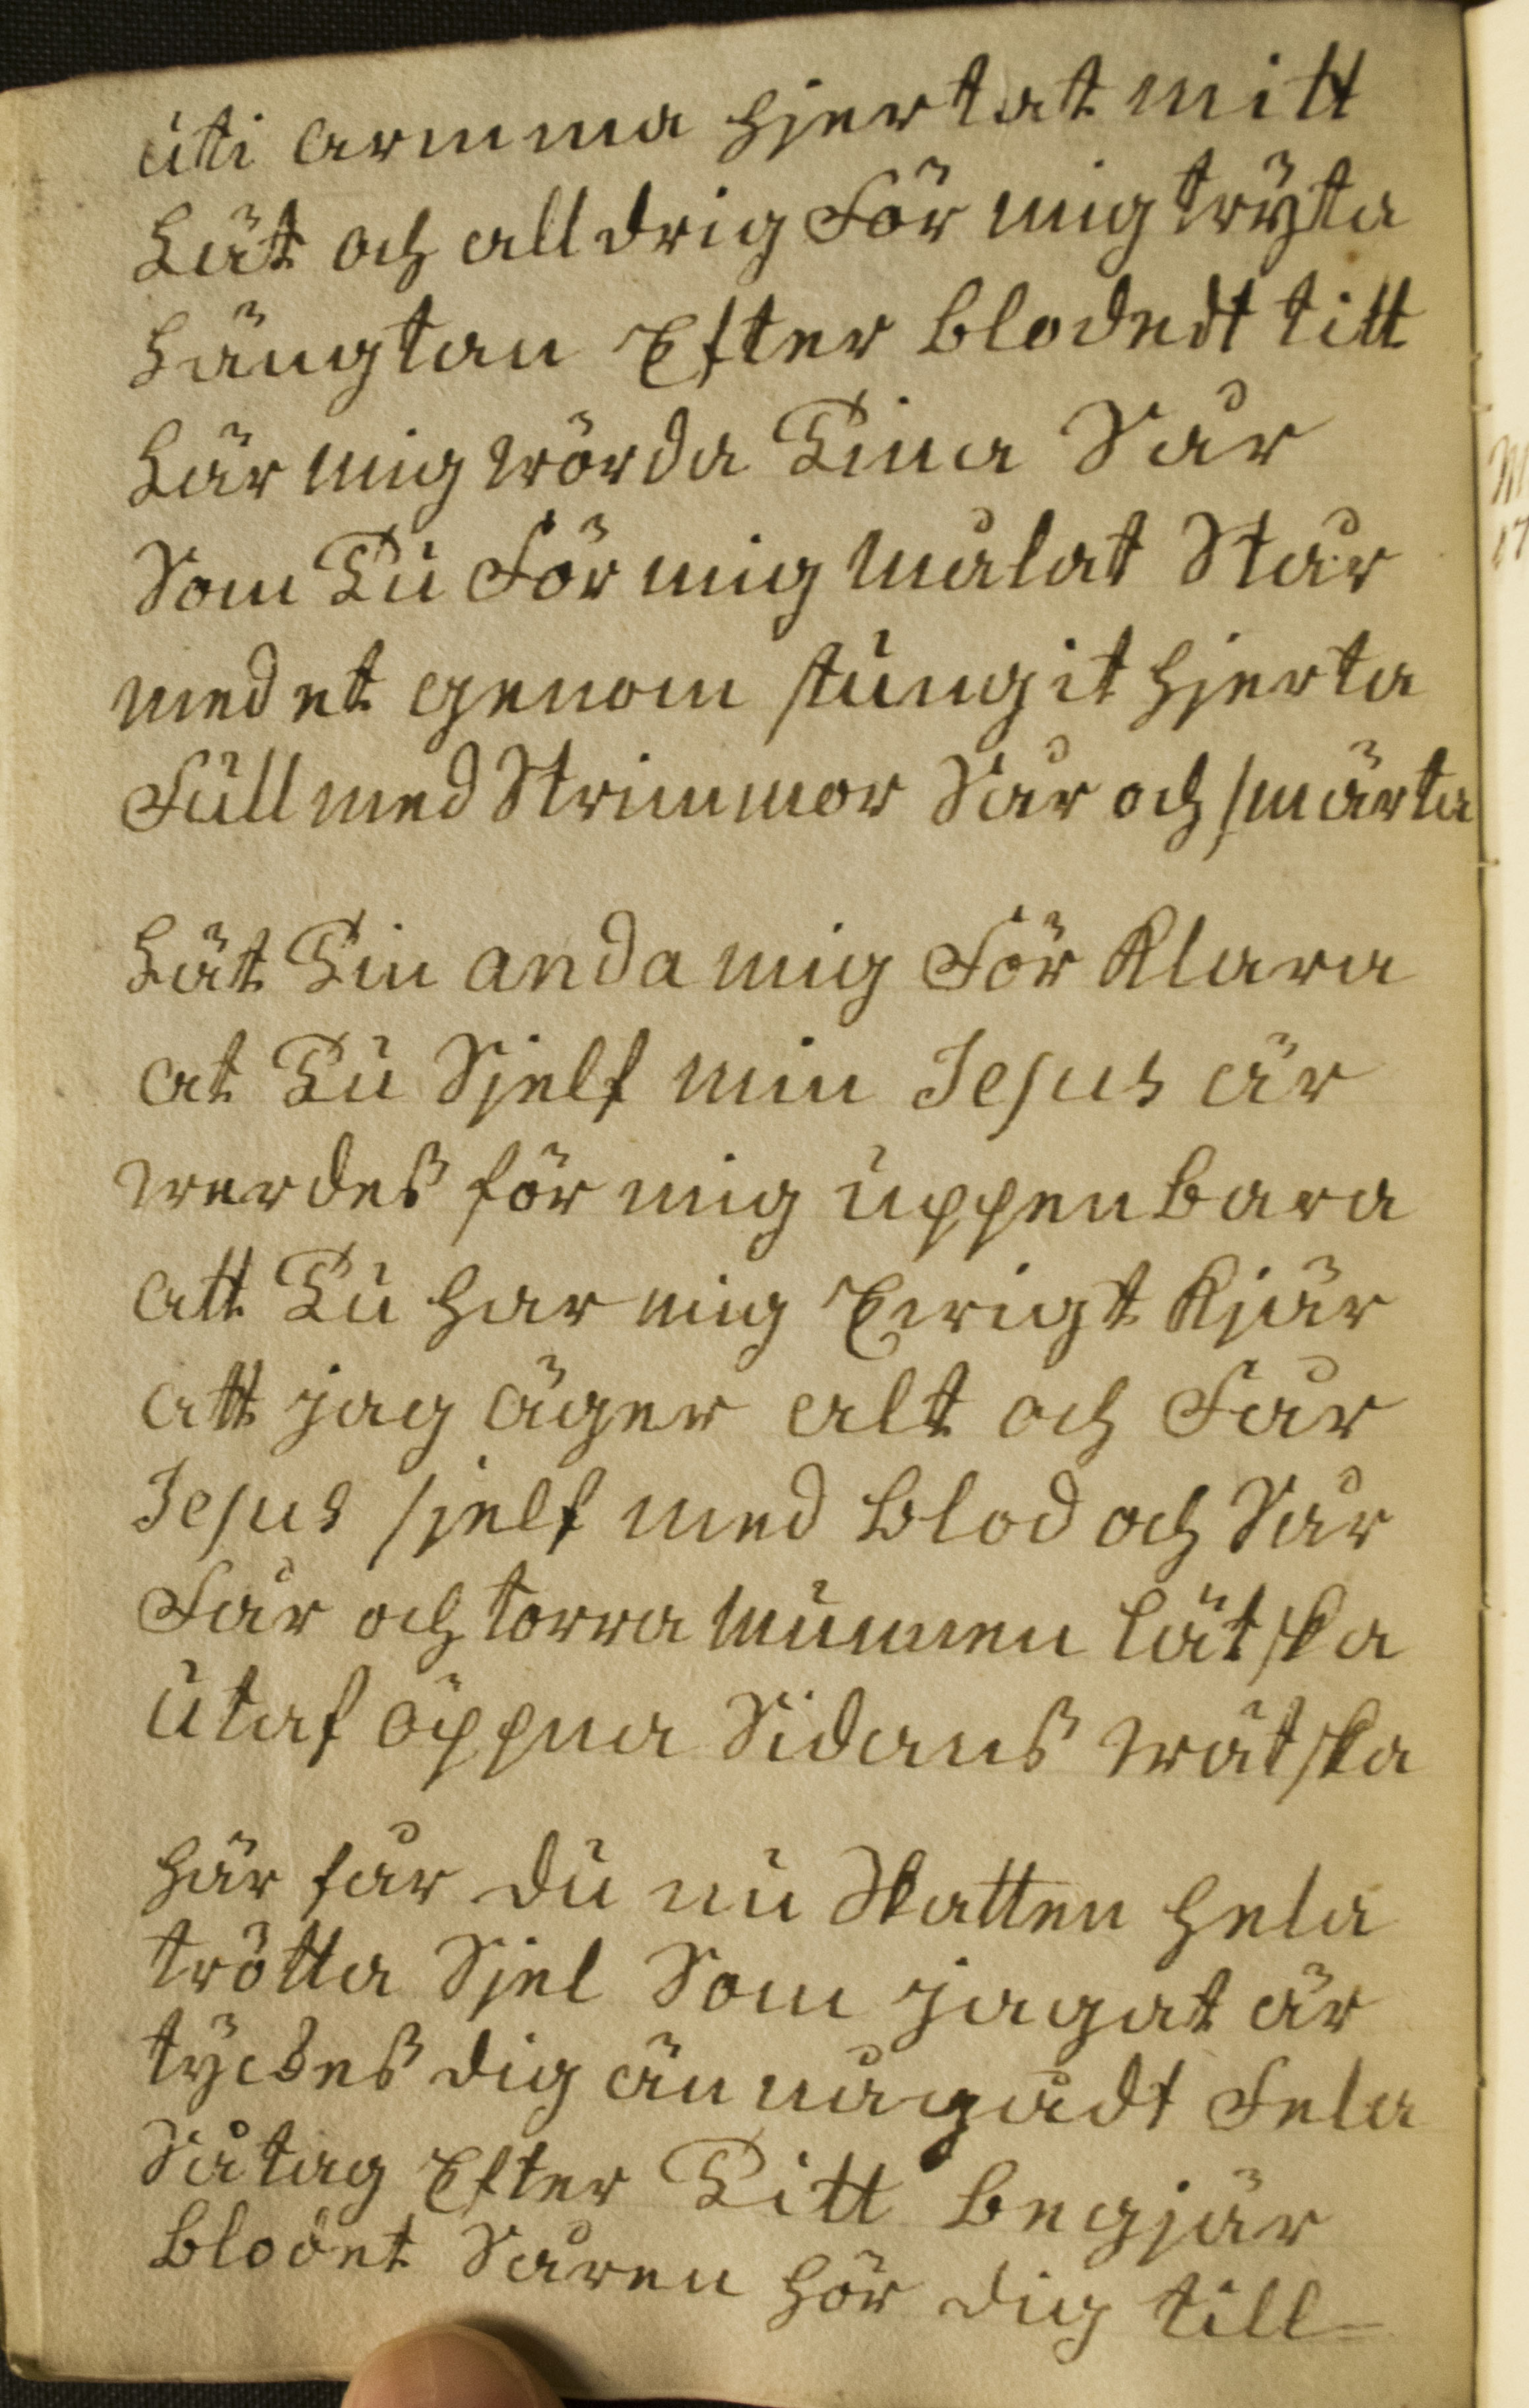 uti armma hjertat mitt
Låt och alldrig För mig trÿta
Längtan Efter blodedt titt
Lär mig wörda Tina Sår
Som Tu För mig målat Står
med et genom stungit hjerta
Full med Strimmor Sår och smärta
Lät Tin anda mig För Klara
at Tu Sjelf min Jesus är
werdes för mig uppenbara
att Tu har mig Ewigt Kjär
att jag äger alt och Får
Jesus sjelf med blod och Sår
Får och torra munnen lätska
utaf öppna Sidans wätska
här får du nu Skatten hela
trötta Sjel Som jagat är
tyckes dig än någådt Fela
Så tag Efter Titt begjär
blodet Såren hör dig till